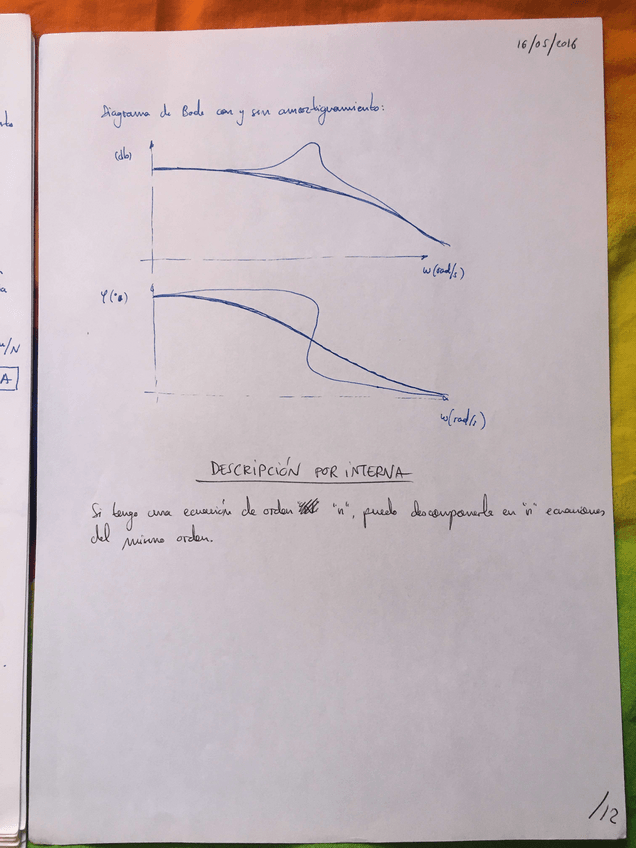 16/05/2016
Diagrama de Bode con y sin amortiguamiento:
(db)
w(rad/s)
φ(°)
w(rad/s)
DESCRIPCIÓN POR INTERNA
Si tengo una ecuación de orden "n", puedo descomponerla en "n" ecuaciones
del mismo orden.
/N
A
/12